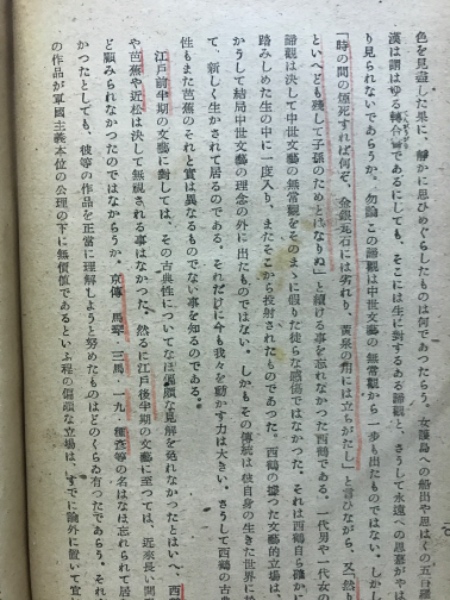 色を見盡した果に、靜かに思ひめぐらしたものは何であつたらう。女護島への船出や思はくの五百羅
漢は謂はゆる轉合であるにしても、そこには生に對するある諦觀と、さうして永遠への思慕がやは
り見られないであらうか。勿論この諦觀は中世文藝の無常觀から一歩も出たものではない。しかし
「時の間の煙死すれば何ぞ、金銀瓦石には劣れり、黄泉の用には立ちがたし」と言ひながら、又「然り
といへども殘して子孫のためとはなりぬ」と續ける事を忘れなかつた西鶴である。一代男や一代女の
諦觀は決して中世文藝の無常觀をそのまゝに假りた徒らな感傷ではなかつた。それは西鶴自ら確かに
踏みしめた生の中に一度入り、またそこから投射されたものであつた。西鶴の據つた文藝的立場は、
かうして結局中世文藝の理念の外に出たものではない。しかもその傳統は彼自身の生きた世界に於
て、新しく生かされて居るのである。それだけに今も我々を動かす力は大きい。さうして西鶴の古典
性もまた芭蕉のそれと實は異なるものでない事を知るのである。
江戸前半期の文藝に對しては、その古典性についてなほ偏頗な見解を免れなかつたとはいへ、西鶴
や芭蕉や近松は決して無視される事はなかつた。然るに江戸後半期の文藝に至つては、近來長い間殆
ど顧みられなかつたのではなからうか。京傳・馬琴・三馬・一九・種彦等の名はなほ忘れられて居
かつたとしても、彼等の作品を正當に理解しようと努めたものはどのくらゐ有つたであらう。それ
の作品が軍國主義本位の公理の下に無價値であるといふ程の偏頗な立場は、すでに論外に置いて宜